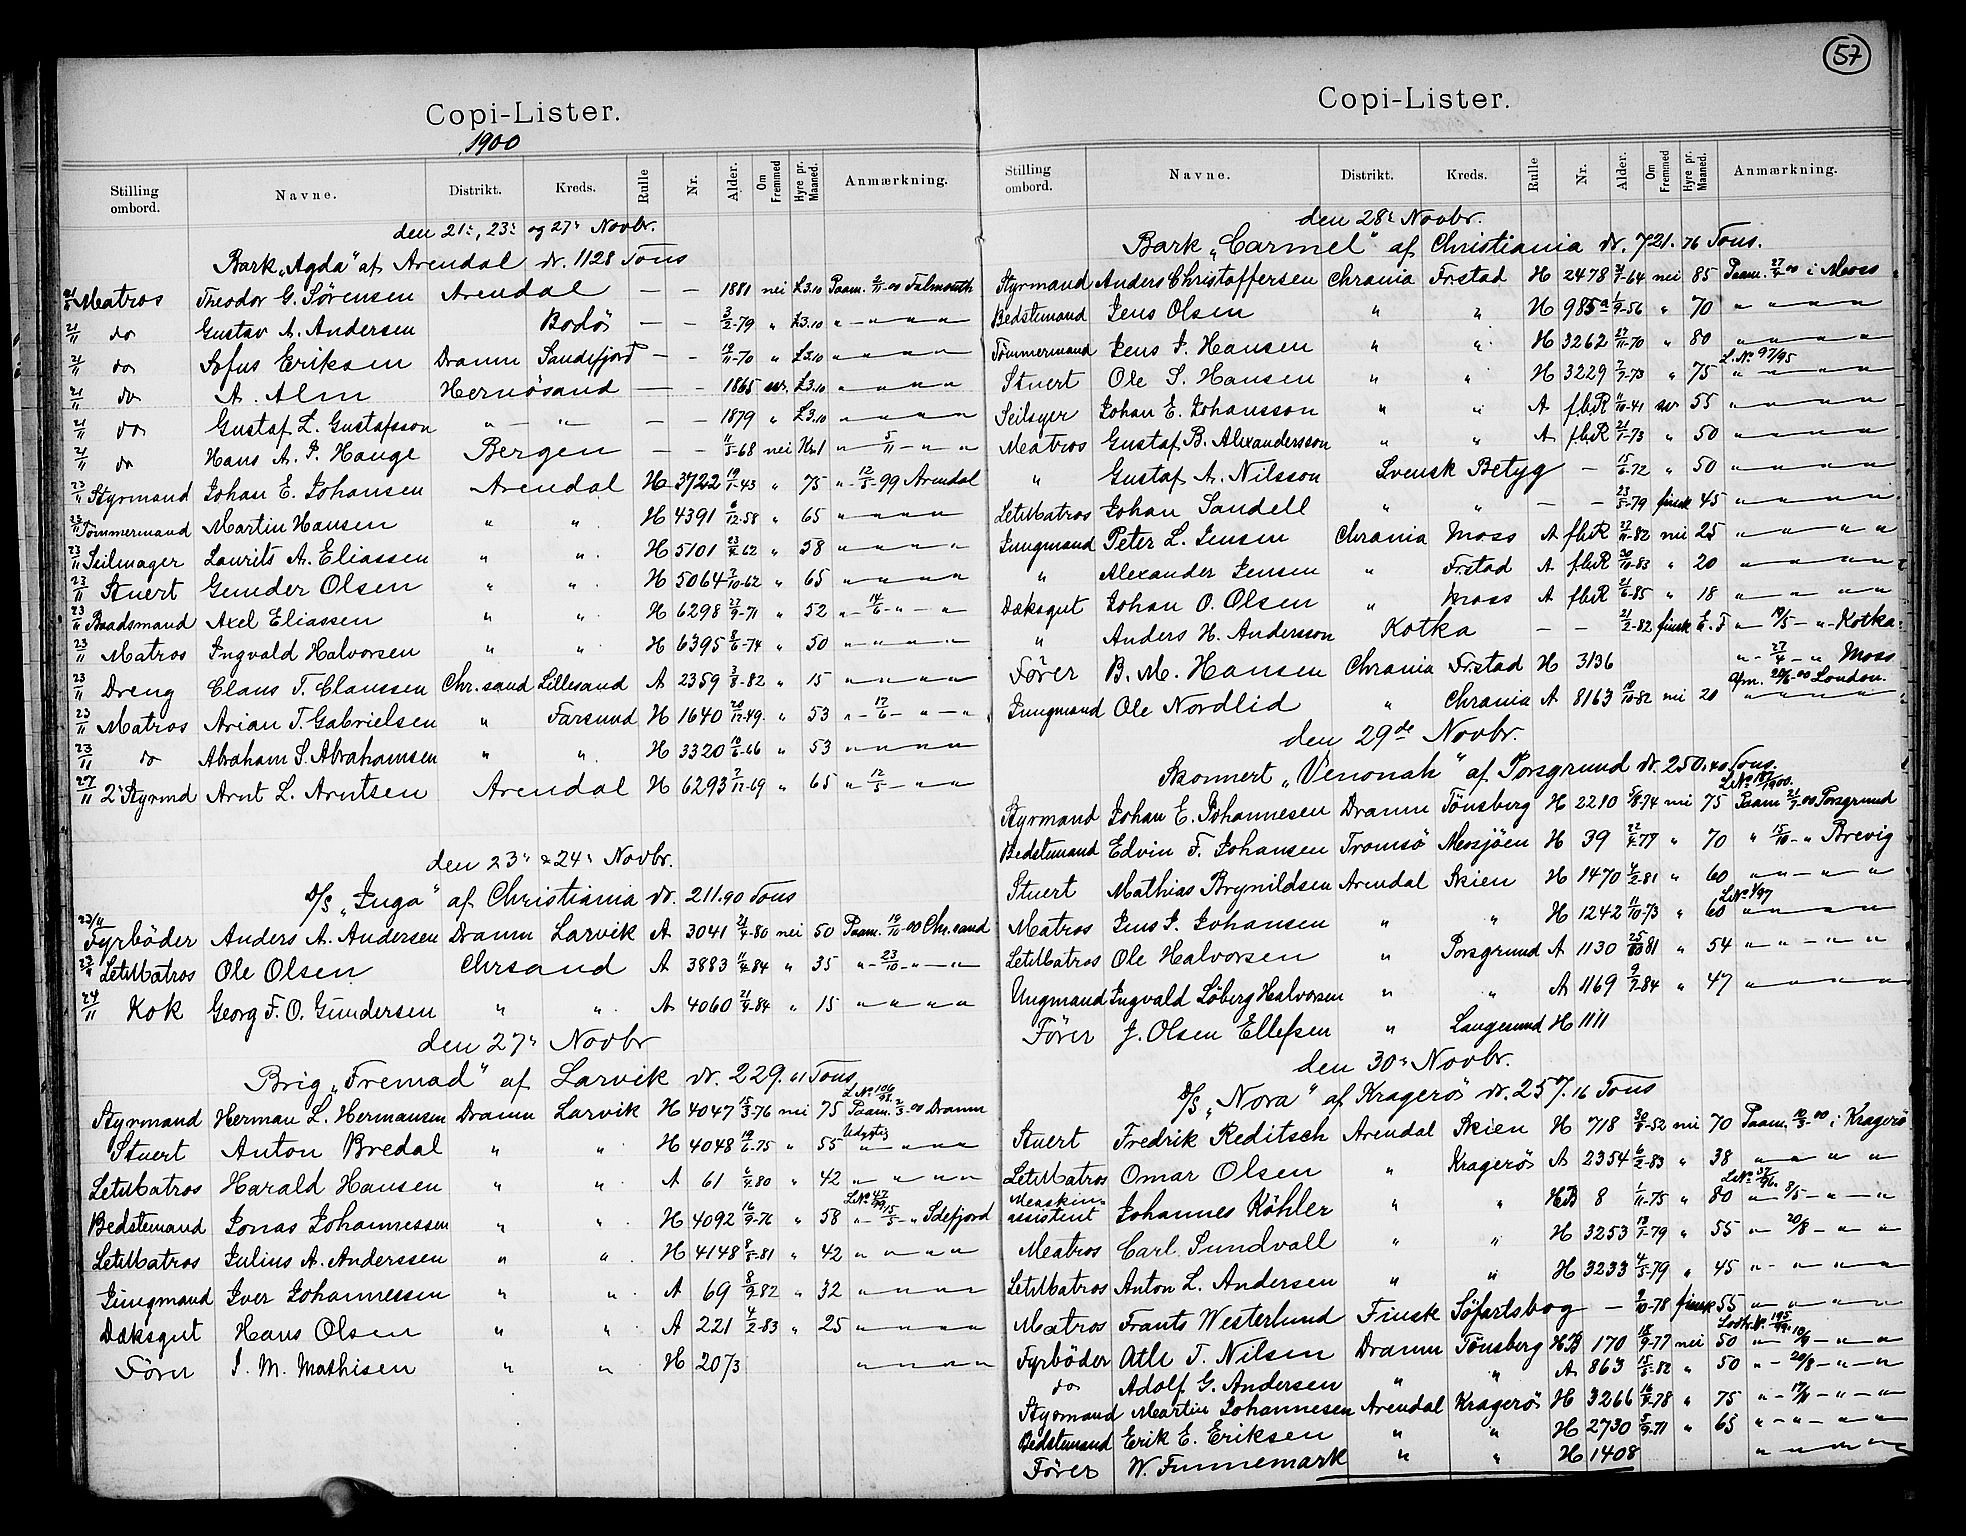 Copi-Lister.
1900
Stilling ombord. Navne. Distrikt. Kreds. Rulle Nr. Alder. Om Fremmed Hyre pr. Maaned. Anmærkning.
den 21:, 23: og 27: Novbr.
Bark "Agda" af Arendal dr. 1128 Tons
21/11 Matros Theodor G. Sörensen Arendal — — 1881 nei £3.10 Paam. 2/11-00 Falmouth
21/11 do Gustav A. Andersen Bodö — — 3/2-79 " £3.10 " — " — " — "
21/11 do Sofus Eriksen Dramn Sandefjord — — 19/11-70 " £3.10 " — " — " — "
21/11 do A. Alm Hernösand — — 1865 sv. £3.10 " — " — " — "
21/11 do Gustaf L. Gustafsson " — " — — 1879 " £3.10 " — " — " — "
21/11 do Hans A. P. Hauge Bergen — — 11/5-68 nei " — 5/11 — " — "
23/11 Styrmand Johan E. Johansen Arendal H 3722 19/1-43 " 75 " — 12/5-99 Arendal
23/11 Tömmermand Martin Hansen " " H 4391 6/12-58 " 65 " — " — " — "
23/11 Seilmager Laurits A. Eliassen " " H 5101 23/4-62 " 58 " — " — " — "
23/11 Stuert Gunder Olsen " " H 5064 7/10-62 " 65 " — " — " — "
23/11 Baadsmand Axel Eliassen " " H 6298 27/9-71 " 52 " — 14/6 — " — "
23/11 Matros Ingvald Halvorsen " " H 6395 8/6-74 " 50 " — " — " — "
23/11 Dreng Claus T. Claussen Chr.sand Lillesand A 2359 3/8-82 " 15 " — " — " — "
23/11 Matros Arian T. Gabrielsen " Farsund H 1640 20/12-49. " 53 " — 17/6 — " — "
23/11 do Abraham S. Abrahamsen " " H 3320 10/6-66 " 53 " — " — " — "
27/11 2: Styrmd Arnt L. Arntsen Arendal H 6293 7/12-69 " 65 " — 12/5 — " — "
den 23: & 24: Novbr.
D/S "Inga" af Christiania dr. 211.90 Tons
23/11 Fyrböder Anders A. Andersen Dramn Larvik A 3041 21/4-80 nei 50 Paam. 19/10-00 Chr.sand
23/11 LetMatros Ole Olsen Chrsand A 3883 11/4-84 " 35 " — 23/10 — " — "
24/11 Kok Georg F. O. Gundersen " " A 4060 21/4-84 " 15 " — " — " — "
den 27: Novbr
Brig "Fremad" af Larvik dr. 229.61 Tons
Styrmand Herman L. Hermansen Dramn Larvik H 4047 15/3-76 nei 75 L.No 106/98. Paam. 2/3-00 Dramn
Stuert Anton Bredal " " H 4048 19/6-75 " 55 Udygtig " — " — "
LetMatros Harald Hansen " " A 61 6/4-80 " 42 " — " — " — "
Bedstemand Jonas Johannessen " " H 4092 16/9-76 " 58 " — 15/5 — " Sdefjord
LetMatros Julius A. Anderssen " " H 4148 8/5-81 " 42 " — " — " — "
Jungmand Iver Johannessen " " A 69 8/9-82 " 32 " — " — " — "
Dæksgut Hans Olsen " " A 221 4/2-83 " 25 " — " — " — "
Förer I. M. Mathisen " " H 2073 " — " — " — "
57
Copi-Lister.
Stilling ombord. Navne. Distrikt. Kreds. Rulle Nr. Alder. Om Fremmed Hyre pr. Maaned. Anmærkning.
den 28: Novbr.
Bark "Carmel" af Christiania dr. 721.76 Tons.
Styrmand Anders Christoffersen Chrania Frstad H 2478 -64 nei 85 Paam. 27/4-00 i Moss
Bedstemand Jens Olsen " " H 985a 1/9-56 " 70 " — " — " — "
Tömmermand Jens J. Hansen " " H 3262 27/11-70 " 80 " — " — " — "
Stuert Ole S. Hansen " " H 3229 7/7-73 " 75 L.No 97/95 " — " — " — "
Seilsyer Johan E. Johansson " " A fbR 11/10-41 sv 55 " — " — " — "
Matros Gustaf B. Alexandersson " " A fbR 21/1-73 " 50 " — " — " — "
" Gustaf A. Nilsson Svensk Betyg — 15/6-72 " 50 " — " — " — "
LetMatros Johan Sandell " " — — 23/5-79 finsk 45 " — " — " — "
Jungmand Peter L. Jensen Chrania Moss A fbR 27/11-82 nei 25 " — " — " — "
" Alexander Jensen " Frstad A fbR 30/10-83 " 20 " — " — " — "
Dæksgut Johan O. Olsen " Moss A fbR 21/6-85 " 18 " — " — " — "
" Anders H. Andersson Kotka — — 21/2-82 finsk " — 19/5 — " Kotka
Förer B. M. Hansen Chrania Frstad H 3136 " — 27/4 — " Moss
Jungmand Ole Nordlid " Chrania A 8163 19/10-82 nei 20 Afm. 29/6-00 London. " — " — " — "
den 29de Novbr.
Skonnert "Venonah" af Porsgrund dr. 250.40 Tons.
Styrmand Johan E. Johannesen Dramn Tönsberg H 2210 5/8-74 nei 75 L.No 187/1900. Paam 21/7-00 Porsgrund
Bedstemand Edvin F. Johansen Tromsö Mosjöen H 39 22/4-77 " 70 " 15/10 — " Brevig
Stuert Mathias Brynildsen Arendal Skien H 1470 4/2-81 " 60 " — " — " — "
Matros Jens J. Johansen " " H 1242 11/10-73 " 60 " — " — " — "
LetMatros Ole Halvorsen " Porsgrund A 1130 81 " 54 " — " — " — "
Ungmand Ingvald Söberg Halvorsen " " A 1169 9/7-84 " 47 " — " — " — "
Förer J. Olsen Ellefsen " Langesund H 1111
den 30: Novbr.
D/S "Nora" af Kragerö dr. 257.16 Tons
Stuert Fredrik Reditsch Arendal Skien H 718 30/8-52 nei 70 Paam. 10/3-00 i Kragerö
LetMatros Omar Olsen " Kragerö A 2354 6/2-83 " 38 " — " — " — "
Maskinassistent Johannes Köhler " " HB 8 1/11-75 " 80 " — 8/5 — " — "
Matros Carl Sundvall " " H 3253 13/1-79 " 55 " — 20/8 — " — "
LetMatros Anton L. Andersen " " H 3233 4/5-79 " 45 " — " — " — "
Matros Frants Westerlund Finsk Söfartsbog — 9/10-78 finsk 55 " — " — " — "
Fyrböder Atle T. Nilsen Dramn Tönsberg HB 170 18/9-77 nei 50 " — 10/9 — " — "
do Adolf G. Andersen " " A 863 15/5-82 " 50 " — 20/8 — " — "
Styrmand Martin Johannesen Arendal Kragerö H 3266 16/4-78 " 75 " — 17/11 — " — "
Bedstemand Erik E. Eriksen " " H 2730 5/9-71 " 65 " — " — " — "
Förer W. Finnemark " " H 1408 " — " — " — "